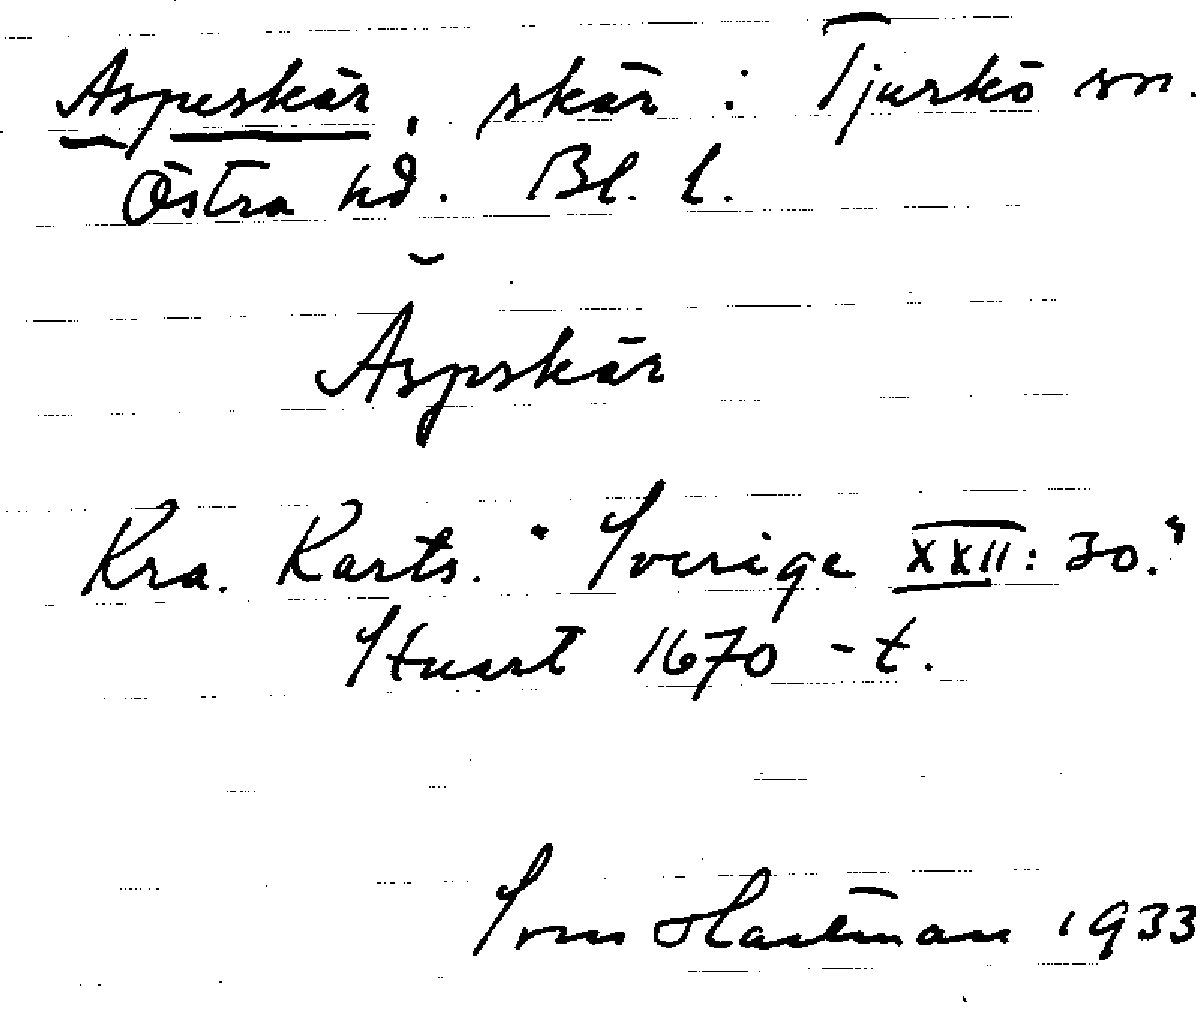 Aspeskär, skär i Tjurkö sn.
Östra hd. Bl. l.
Äspskär
Kra. Karts. "Sverige XXII: 30."
Stuart 1670 - t.
Sven Hartman 1933